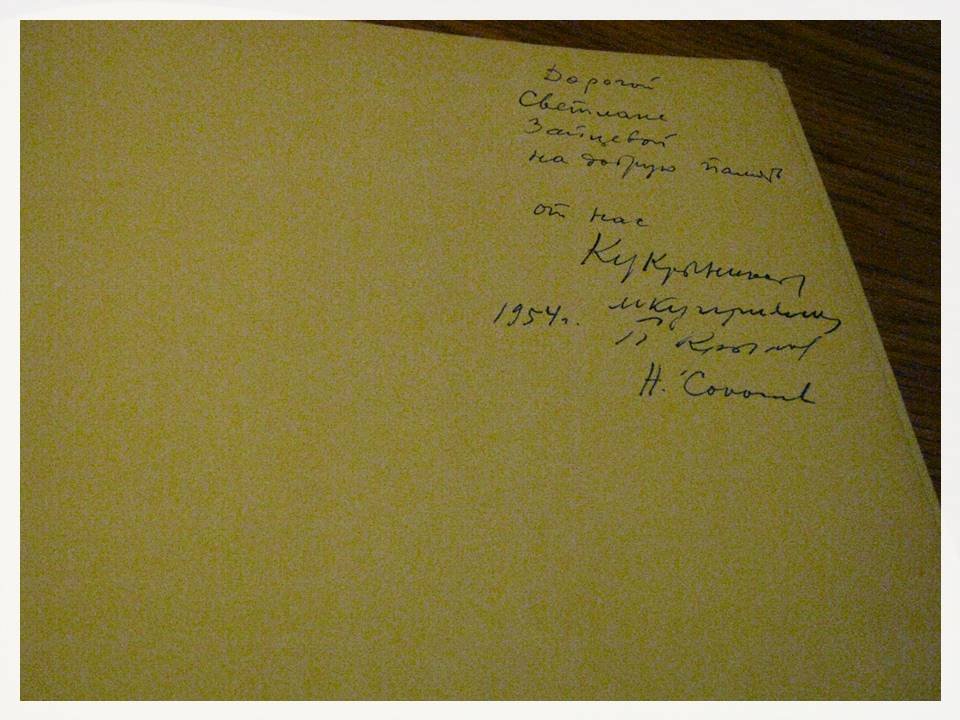 Дорогой
Светлане
Зайцевой
на добрую память
от нас
Кукрыниксы
1954г. М Куприянов
П Крылов
Н. Соколов